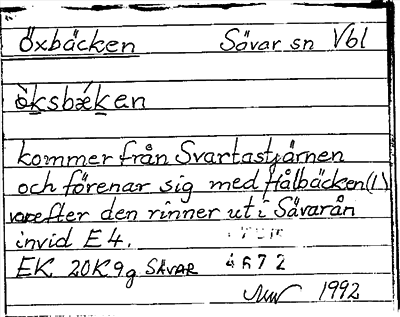 Öxbäcken Sävar sn Vbl
ö̀ksbǽken
kommer från Svartastjärnen
och förenar sig med Hålbäcken (1)
varefter den rinner ut i Sävarån
invid E4.
EK 20K9g SÄVAR 4672
1992